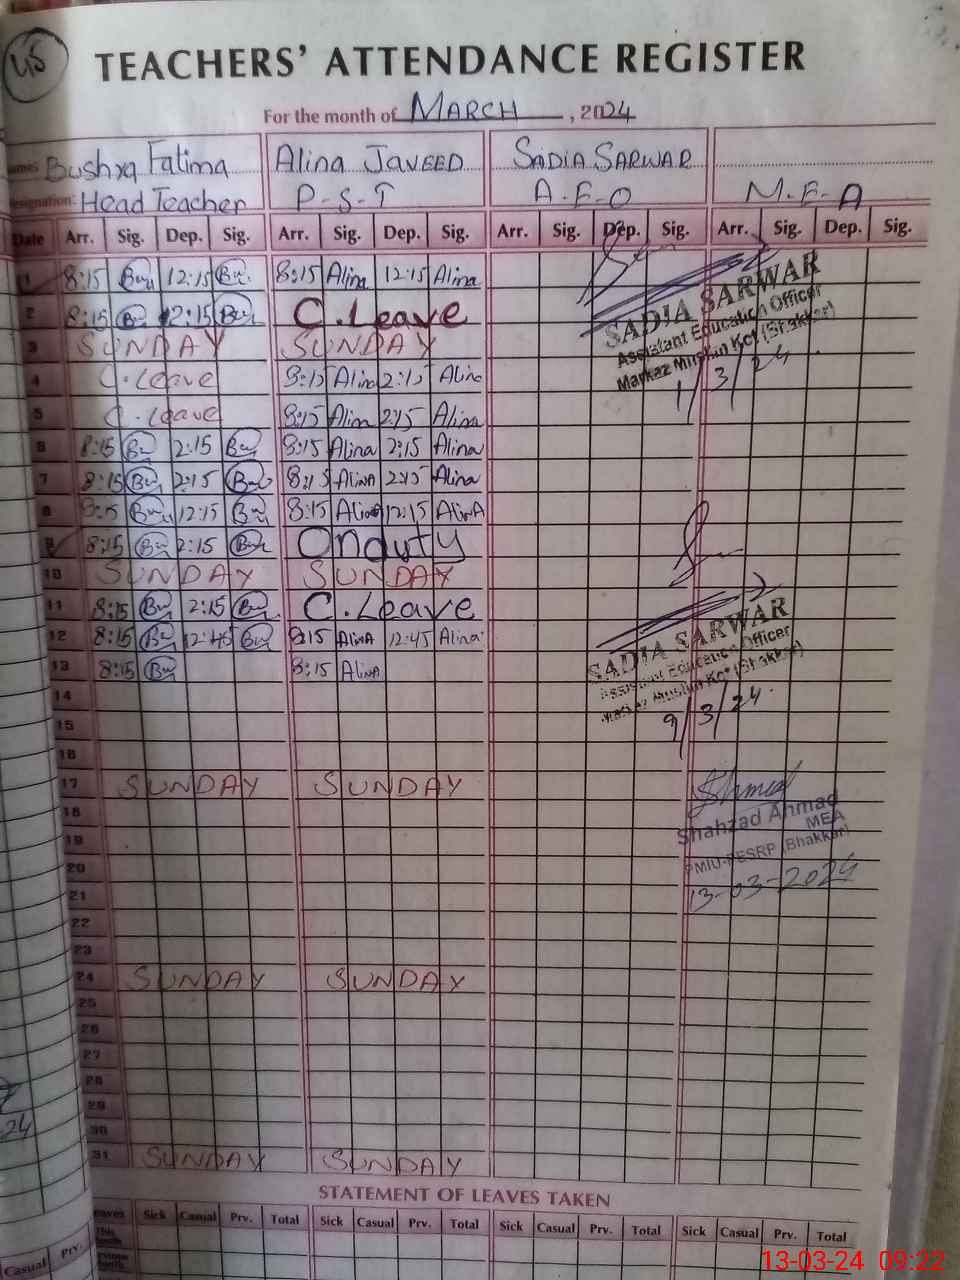 45
TEACHERS' ATTENDANCE REGISTER
For the month of MARCH, 2024
Names: Bushra Fatima Alina JAVEED SADIA SARWAR
Designation: Head Teacher P-S-T A-E-O M-E-A
Date Arr. Sig. Dep. Sig. Arr. Sig. Dep. Sig. Arr. Sig. Dep. Sig. Arr. Sig. Dep. Sig.
1 8:15 12:15 8:15 Alina 12:15 Alina
2 8:15 12:15 C.Leave
3 SUNDAY SUNDAY
4 C.leave 8:15 Alina 2:15 Alina
5 C.leave 8:15 Alina 2:15 Alina
6 8:15 2:15 8:15 Alina 2:15 Alina
7 8:15 2:15 8:15 AlinA 2:15 Alina
8 8:15 12:15 8:15 Alina 12:15 AlinA
9 8:15 2:15 On duty
10 SUNDAY SUNDAY
11 8:15 2:15 C.Leave
12 8:15 12:45 8:15 AlinA 12:45 Alina
13 8:15 8:15 AlinA
14
15
16
17 SUNDAY SUNDAY
18
19
20
21
22
23
24 SUNDAY SUNDAY
25
26
27
28
29
30
31 SUNDAY SUNDAY
SADIA SARWAR
Assistant Education Officer
Markaz Muslim Kot (Bhakkar)
1/3/24
SADIA SARWAR
Assistant Education Officer
Markaz Muslim Kot (Bhakkar)
9/3/24
Shahzad Ahmad
MEA
PMIU-PESRP (Bhakkar)
13-03-2024
STATEMENT OF LEAVES TAKEN
Leaves Sick Casual Prv. Total Sick Casual Prv. Total Sick Casual Prv. Total Sick Casual Prv. Total
This Month
Previous Month
Casual Prv.
24
13-03-24 09:22